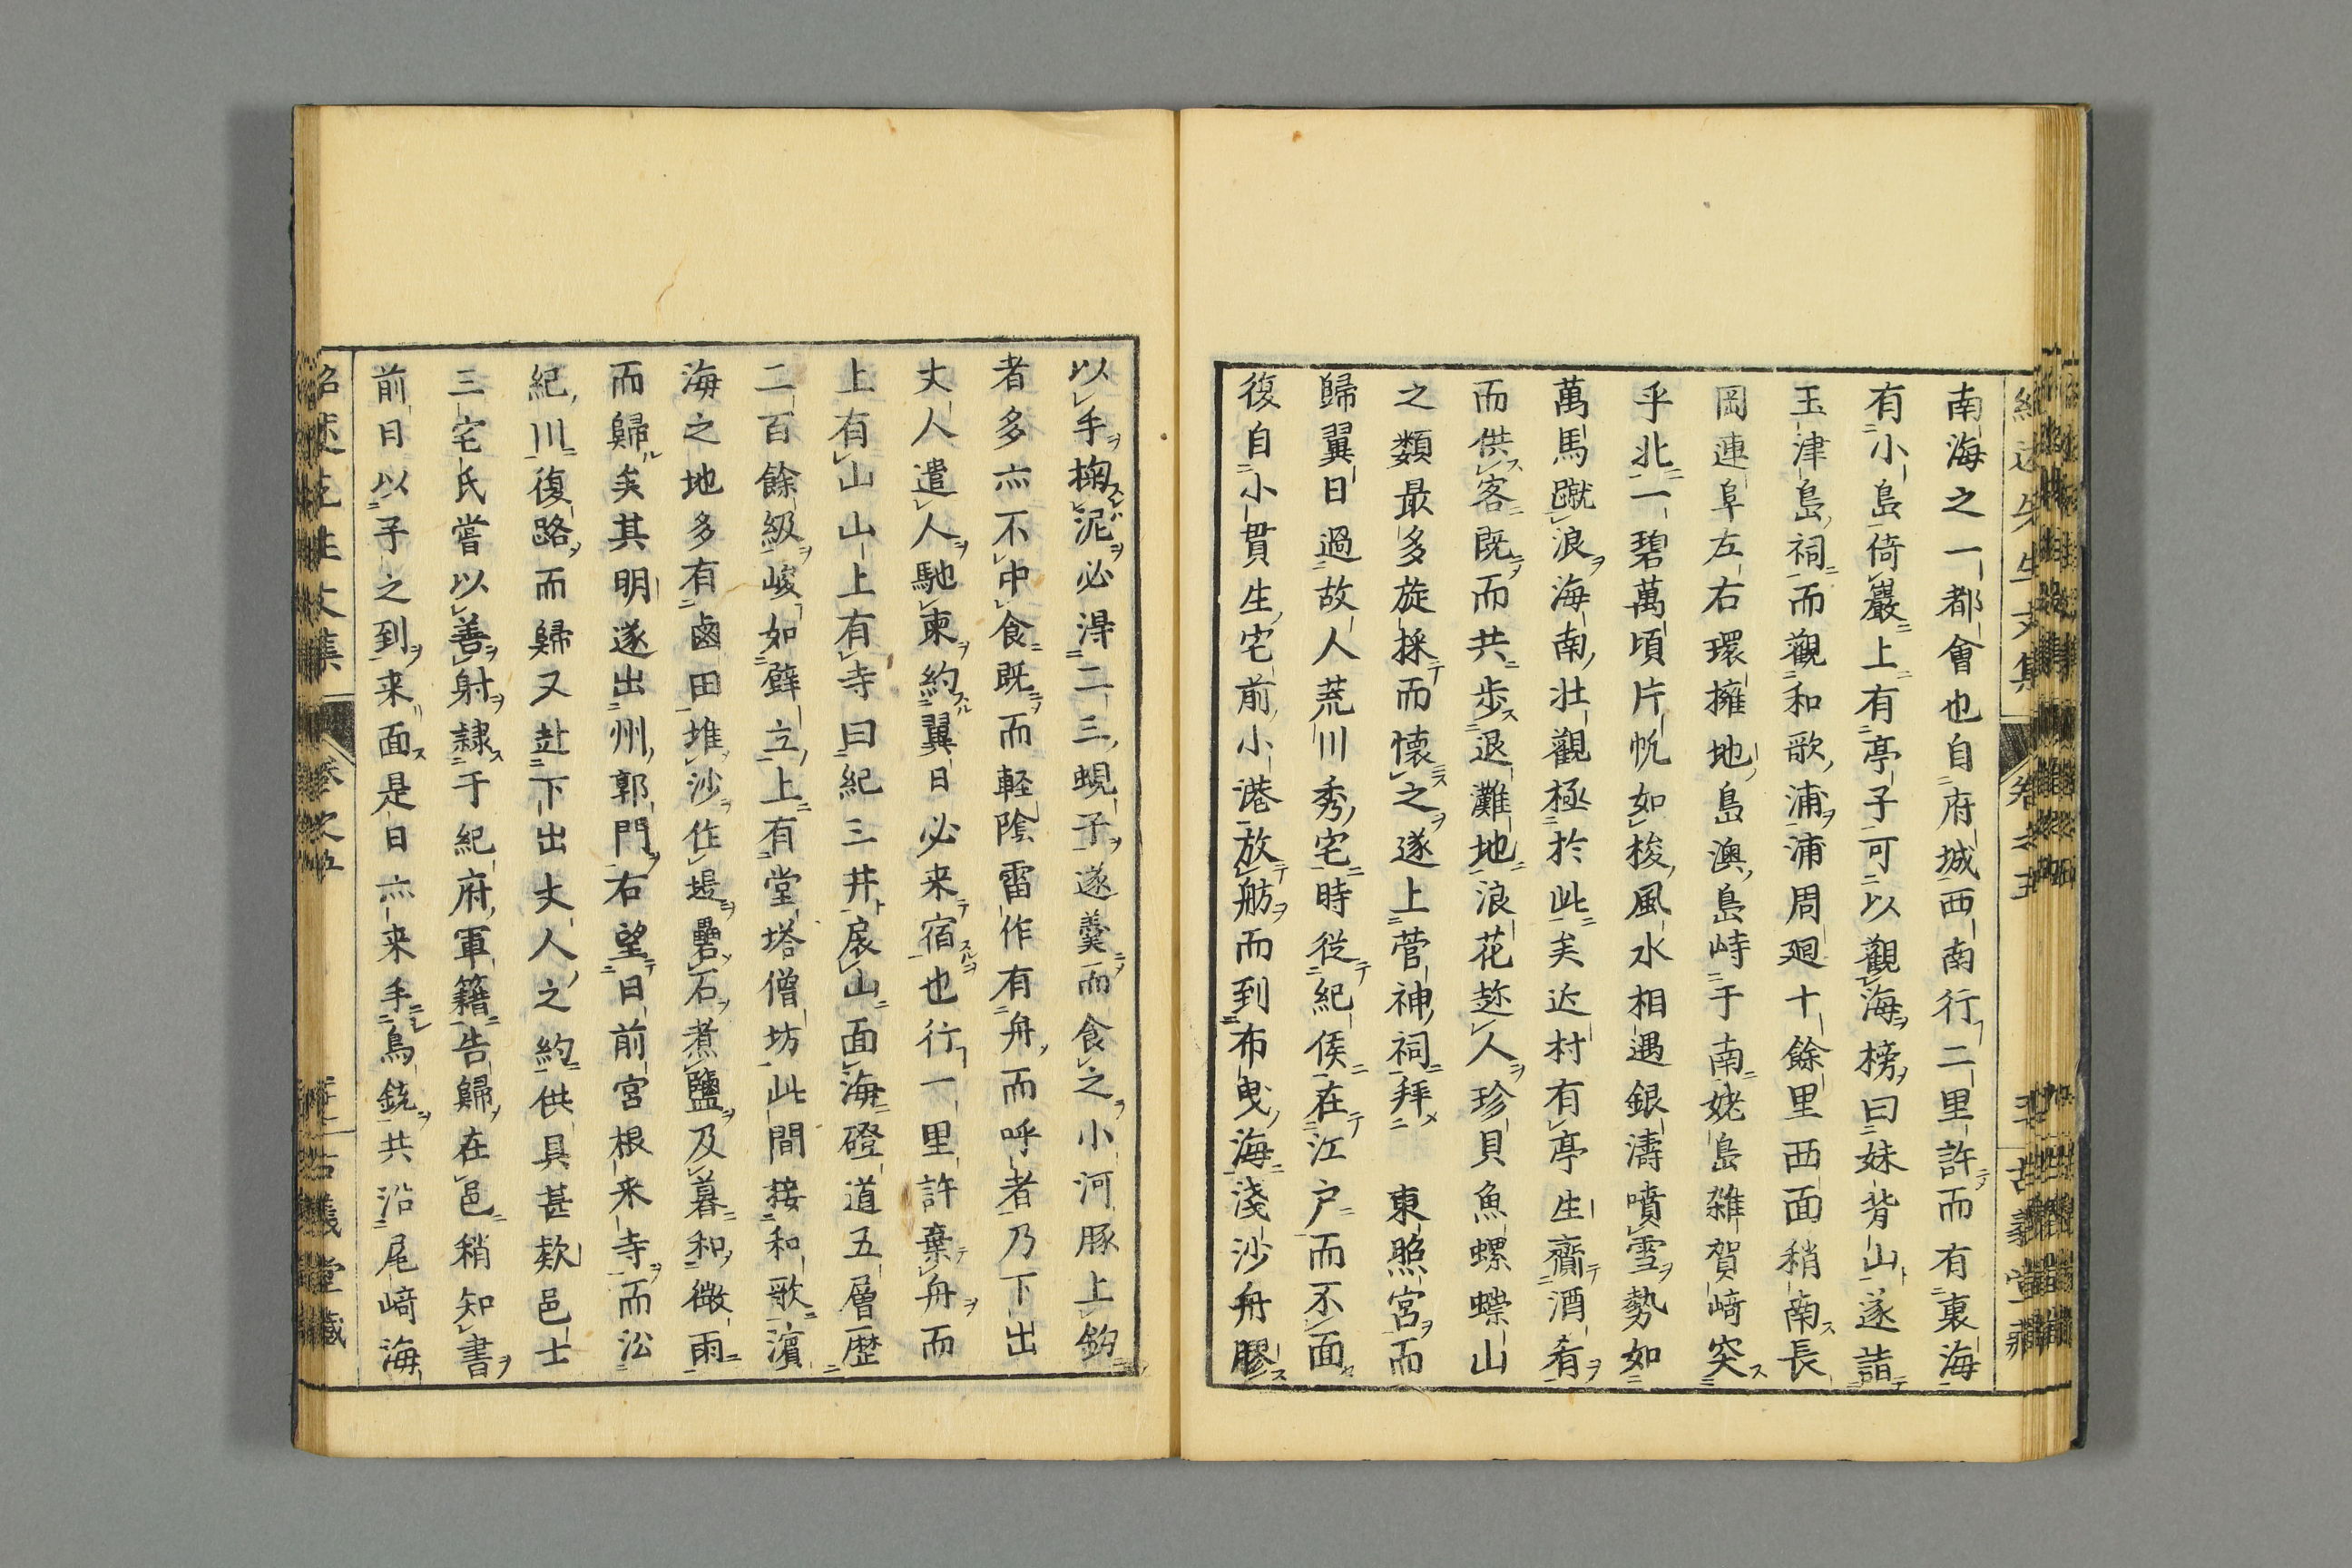 南海之一都會也自府城西南行二里許而有裏海
有小島倚巖上有亭子可以觀海榜曰妹背山遂詣
玉津島祠而觀和歌浦浦周廻十餘里西面稍南長
岡連阜左右環擁地島澳島峙于南姥島雜賀﨑突
乎北一碧萬頃片帆如梭風水相遇銀濤噴雪勢如
萬馬蹴浪海南壯觀極於此矣近村有亭生齎酒肴
而供客既而共步退灘地浪花趂人珍貝魚螺蠑山
之類最多旋採而懐之遂上菅神祠拜　東照宮而
歸翼日過故人荒川秀宅時從紀侯在江戸而不面
復自小貫生宅前小港放舫而到布曳海淺沙舟膠
以手掬泥必淂二三蜆子遂羹而食之小河豚上鈎
者多亦不中食既而軽陰雷作有舟而呼者乃下出
丈人遣人馳柬約翼日必来宿也行一里許棄舟而
上有山山上有寺曰紀三井㡳山面海磴道五層歴
二百餘級峻如壁立上有堂塔僧坊此間接和歌濵
海之地多有鹵田堆沙作堤壘石煮鹽及暮和微雨
而歸矣其明遂出州郭門右望日前宮根来寺而㳂
紀川復路而歸又赴下出丈人之約供具甚欵邑士
三宅氏嘗以善射隷于紀府軍籍告歸在邑稍知書
前日以予之到来面是日亦来手鳥銃共沿尾﨑海
卷之五
古義堂藏